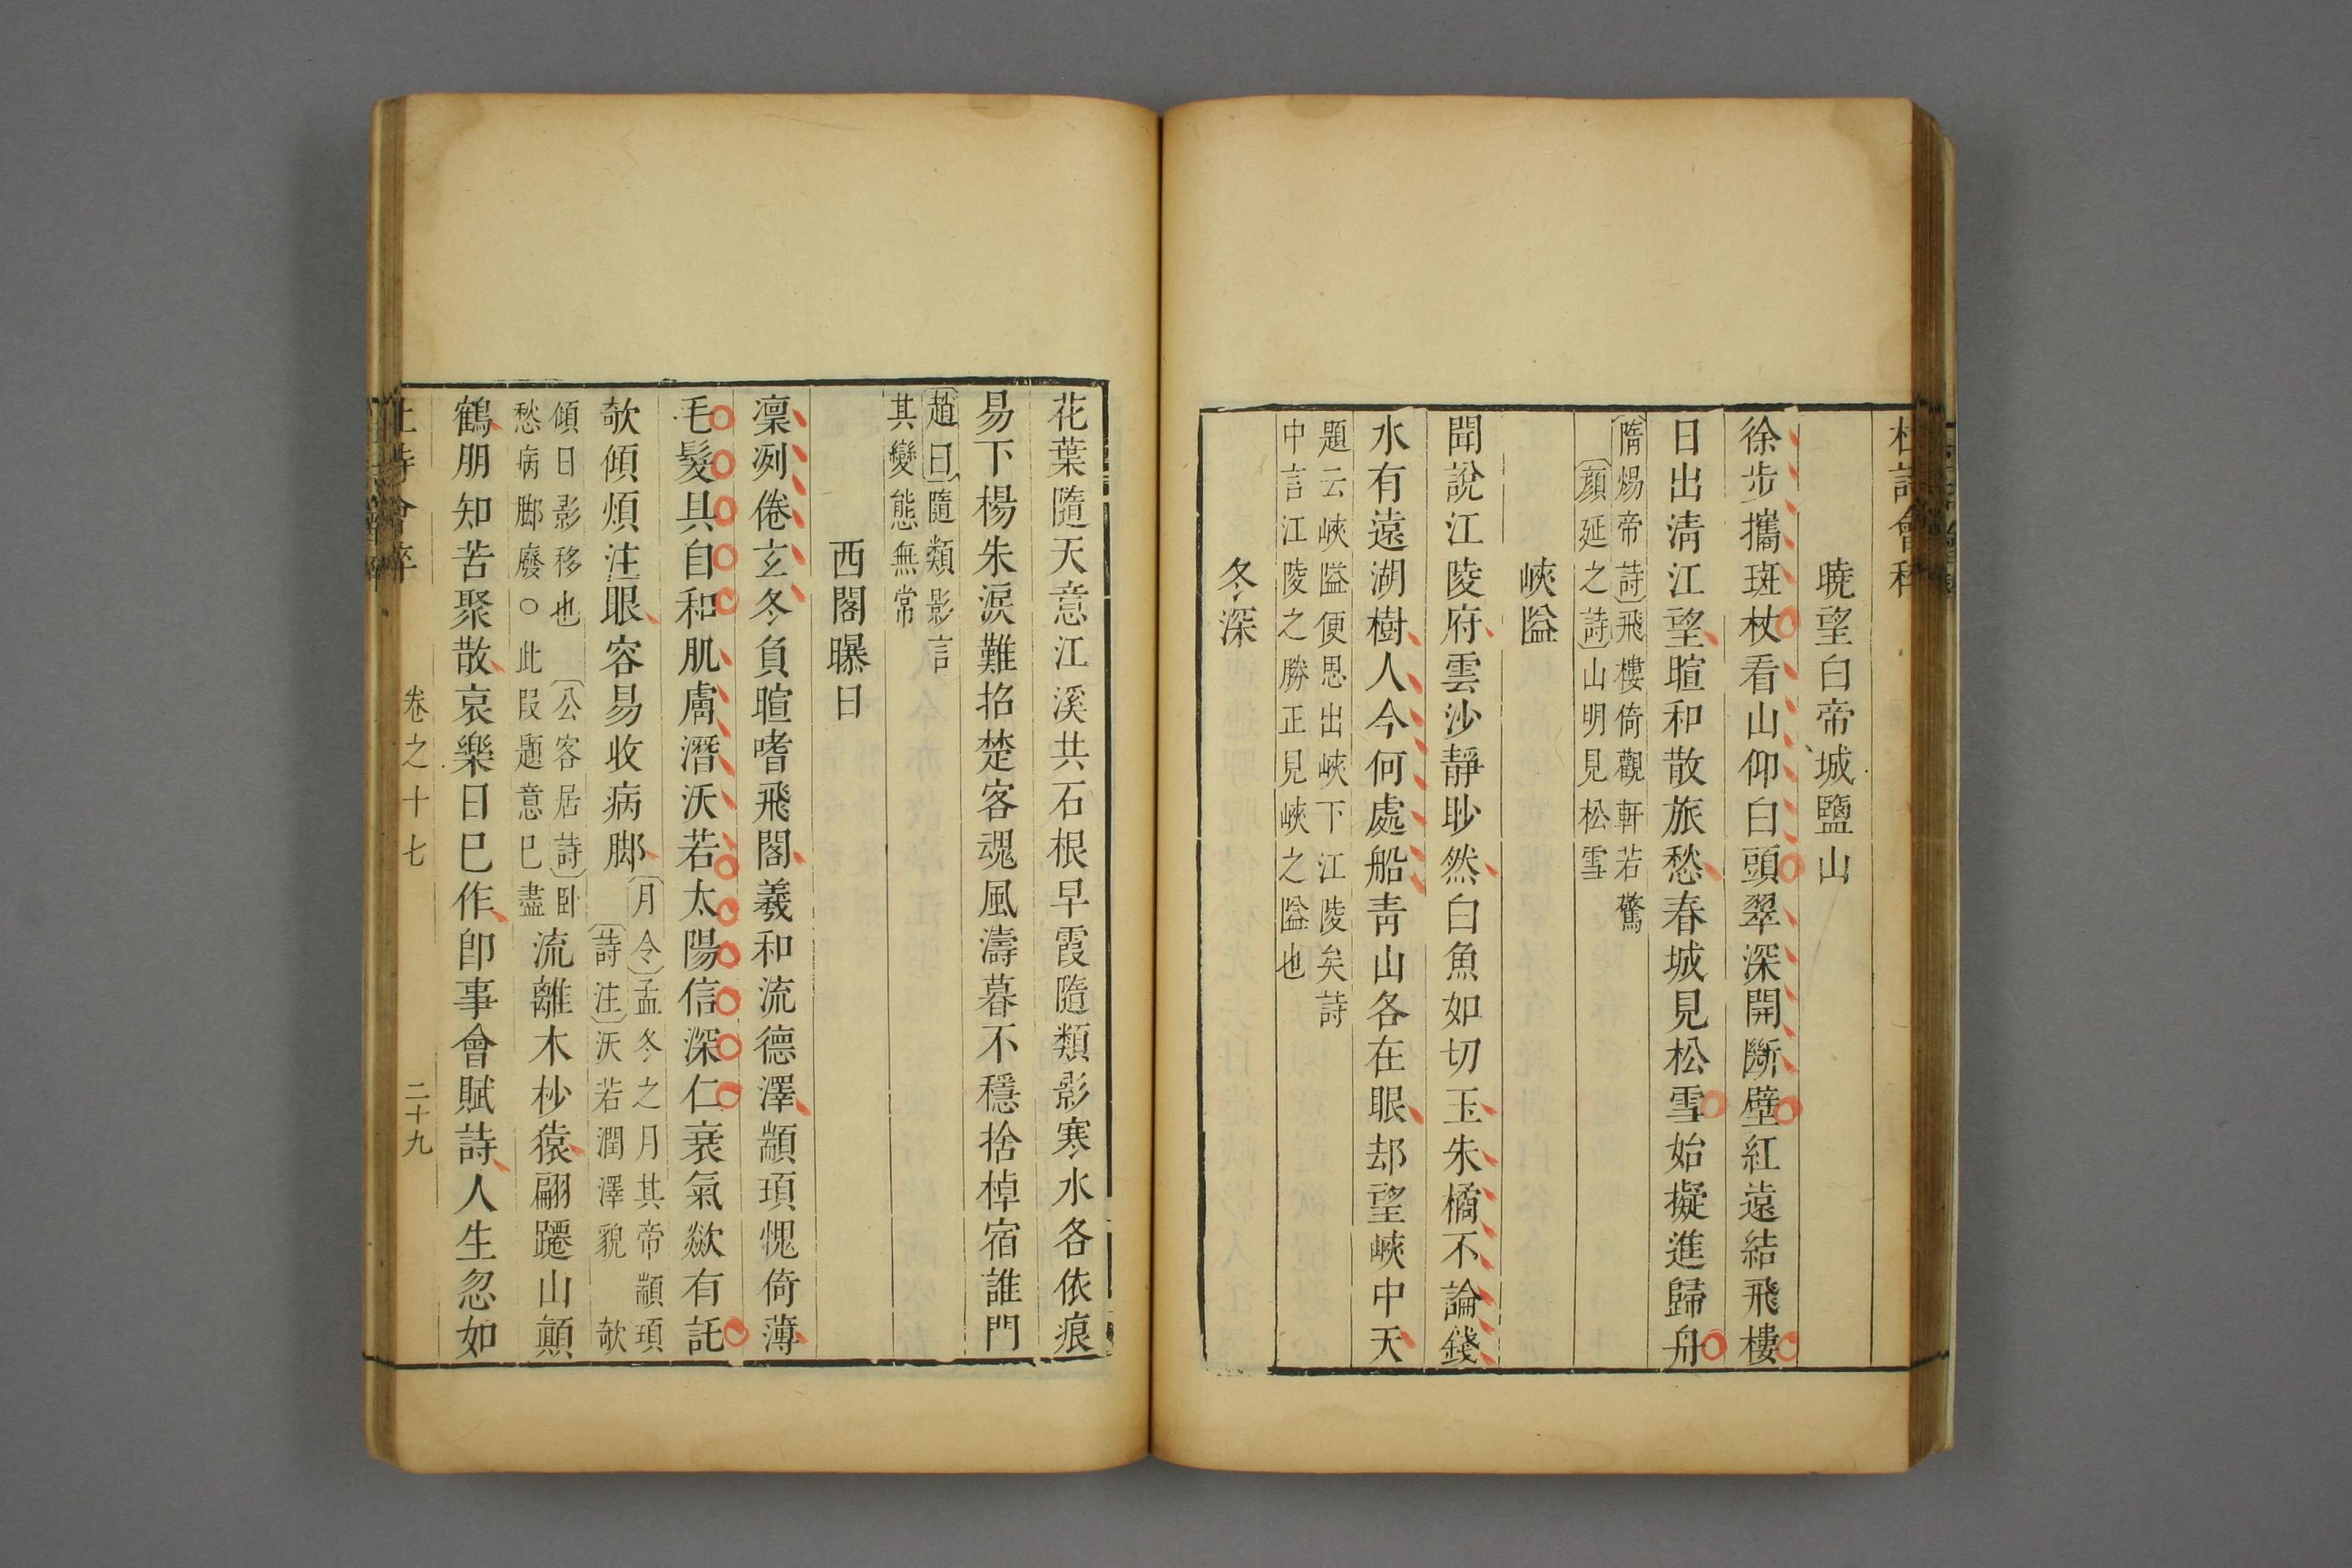 杜詩會稡
曉望白帝城鹽山
徐步攜斑杖看山仰白頭翠深開斷壁紅遠結飛樓
日出淸江望暄和散旅愁春城見松雪始擬進歸舟
隋煬帝詩飛樓倚觀軒若驚
顔延之詩山明見松雪
峽隘
聞說江陵府雲沙靜眇然白魚如切玉朱橘不論錢
水有遠湖樹人今何處船靑山各在眼却望峽中天
題云峽隘便思出峽下江陵矣詩
中言江陵之勝正見峽之隘也
冬深
花葉隨天意江溪共石根早霞隨類影寒水各依痕
易下楊朱淚難招楚客魂風濤暮不穩捨棹宿誰門
趙曰隨類影言
其變態無常
西閣曝日
凜冽倦玄冬負暄嗜飛閣羲和流德澤顓頊愧倚薄
毛髮具自和肌膚潛沃若太陽信深仁衰氣欻有託
欹傾煩注眼容易收病脚
月令孟冬之月其帝顓頊
詩注沃若潤澤貌 欹
傾日影移也 公客居詩卧
愁病脚廢○此叚題意已盡
流離木杪猿翩躚山顚
鶴朋知苦聚散哀樂日已作卽事會賦詩人生忽如
杜詩會稡 卷之十七 二十九